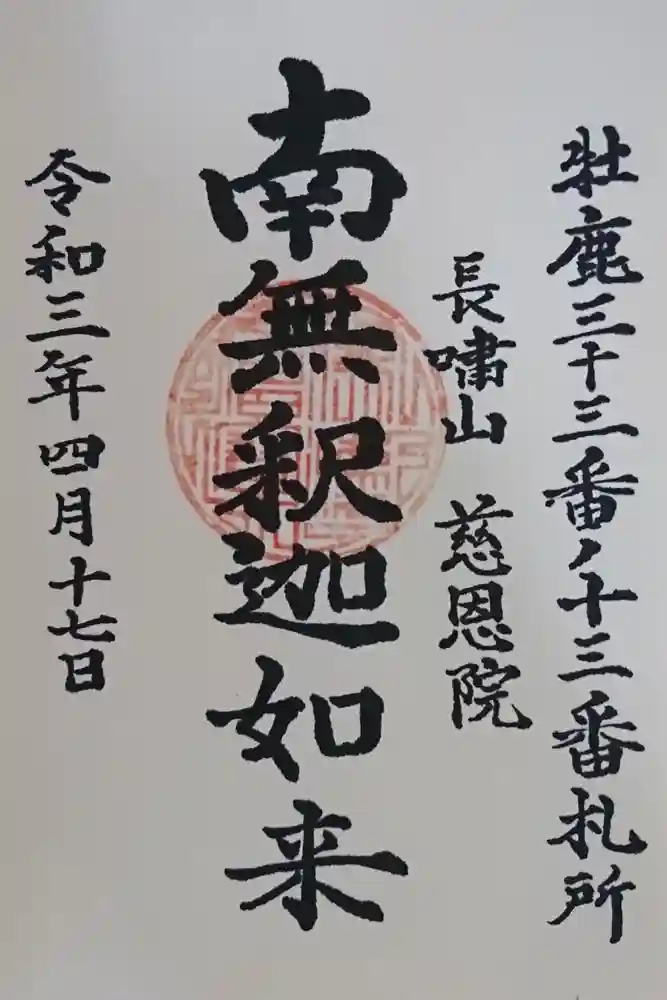 牡鹿三十三番ノ十三番札所
長嘯山 慈恩院
南無釈迦如来
令和三年四月十七日